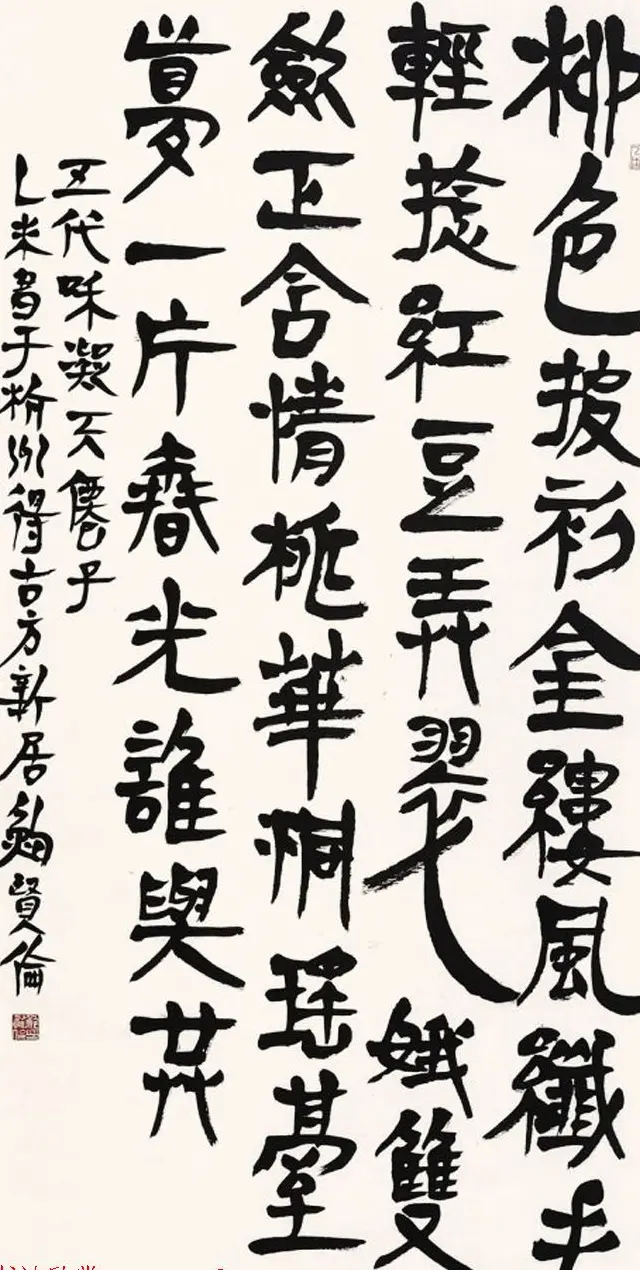 柳色披衫金縷風纖手
輕捻紅豆弄翠娥雙
斂正含情桃華洞瑤臺
夢一片春光誰與共
五代和凝天僊子
乙未書于州得古方新居鮑賢倫